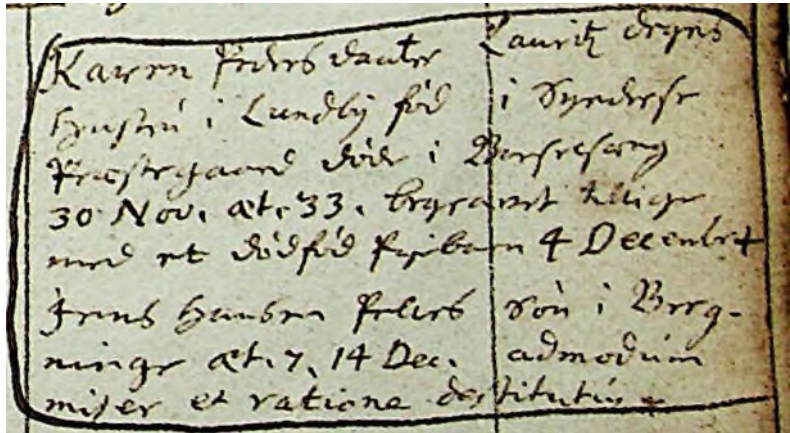 Karen Peders daatter Lauritz degns
hustru i Lundby fød i Synderse
Præstegaard døde i Barselseng
30 Nov. æt. 33. begravet tillige
med et dødfød Pigebarn 4 Decembr
Jens Hansen Feldes Søn i Breg-
ninge æt. 7. 14 Dec. admodum
miser et ratione destitutus